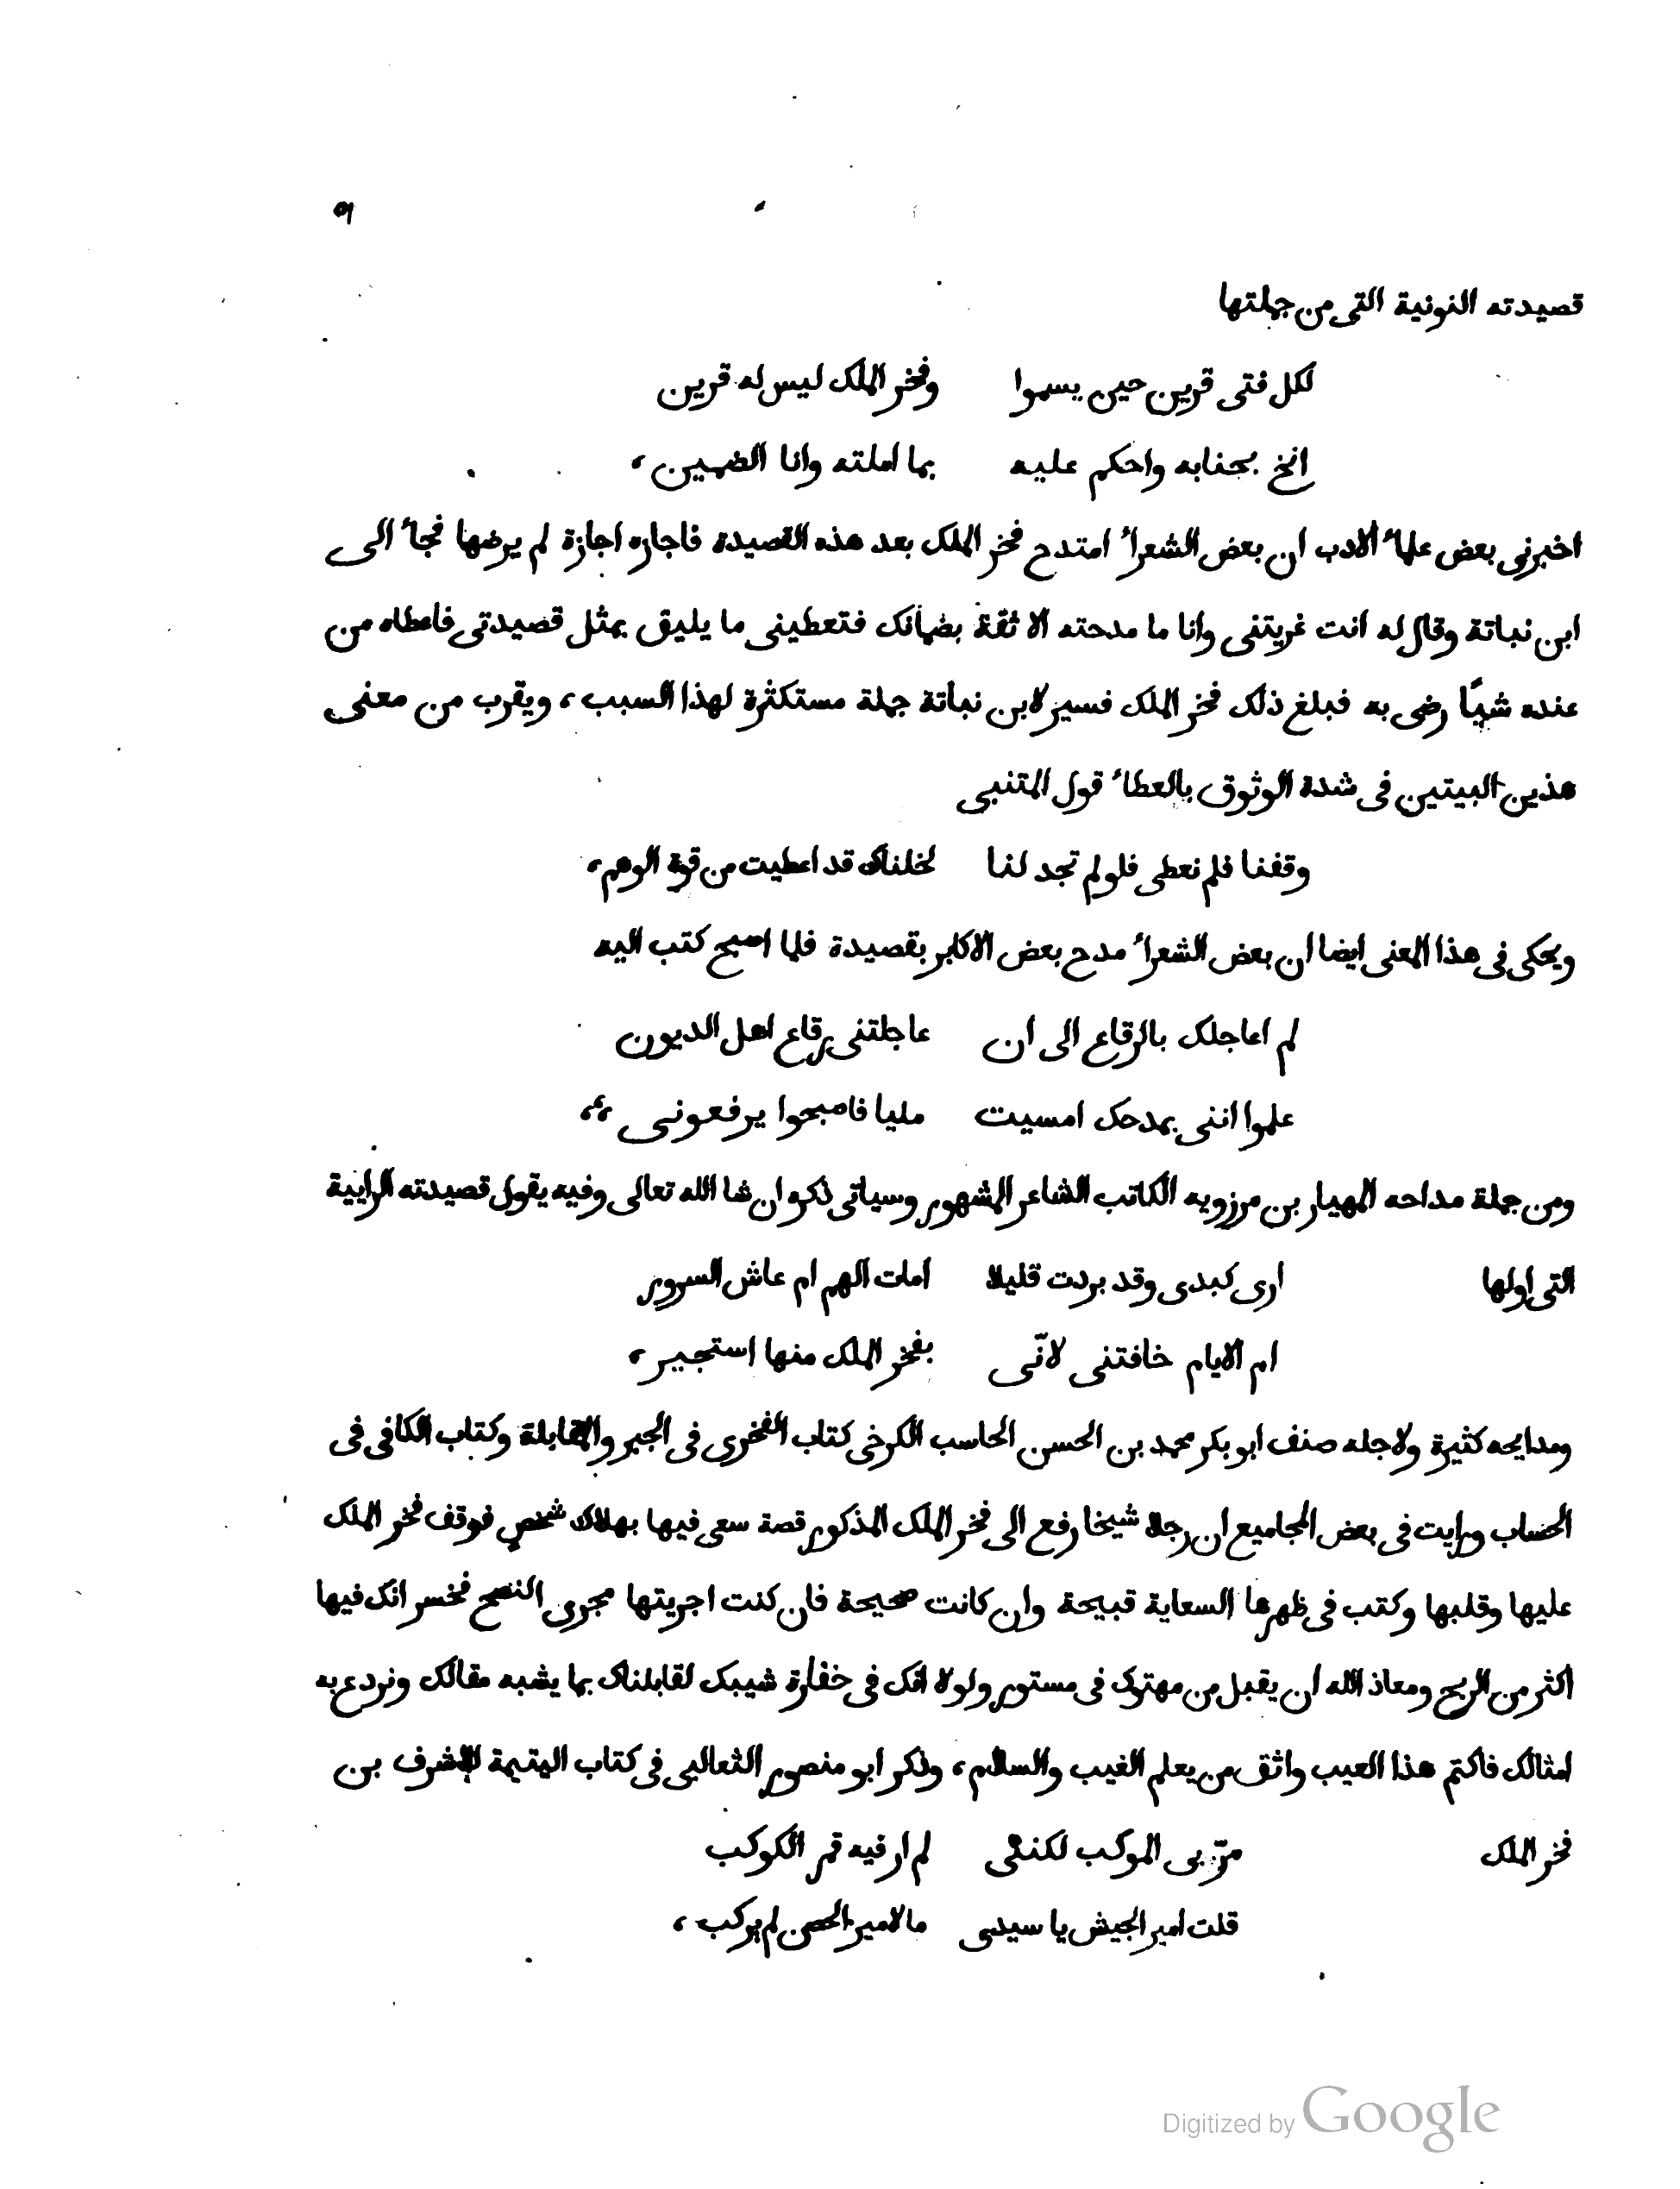 ٩
قصيدته النونية التى من جملتها
لكل فتى قرين حين يسموا وفخر الملك ليس له قرين
انخ بجنابه واحكم عليه بما املته وانا الضمين،
اخبرنى بعض علمآ الادب ان بعض الشعرآ امتدح فخر الملك بعد هذه القصيدة فاجازه اجازة لم يرضها فجآ الى
ابن نباتة وقال له انت غريتنى وانا ما مدحته الا ثقة بضمانك فتعطينى ما يليق بمثل قصيدتى فاعطاه من
عنده شيًا رضى به فبلغ ذلك فخر الملك فسير لابن نباتة جملة مستكثرة لهذا السبب، ويقرب من معنى
هذين البيتين فى شدة الوثوق بالعطآ قول المتنبى
وقفنا فلم نعطى فلو لم تجد لنا لخلناك قد اعطيت من قوة الوهم،
ويحكى فى هذا المعنى ايضا ان بعض الشعرآ مدح بعض الاكابر بقصيدة فلما اصبح كتب اليه
لم اعاجلك بالرقاع الى ان عاجلتنى رقاع اهل الديون
علموا اننى بمدحك امسيت مليا فاصبحوا يرفعونى،،
ومن جملة مداحه المهيار بن مرزويه الكاتب الشاعر المشهور وسياتى ذكره ان شا الله تعالى وفيه يقول قصيدته الرايية
التى اولها ارى كبدى وقد بردت قليلا امات الهم ام عاش السرور
ام الايام خافتنى لانّى بفخر الملك منها استجير،
ومدايحه كثيرة ولاجله صنف ابو بكر محمد بن الحسن الحاسب الكرخى كتاب الفخرى فى الجبر والمقابلة وكتاب الكافى فى
الحساب ورايت فى بعض المجاميع ان رجلا شيخا رفع الى فخر الملك المذكور قصة سعى فيها بهلاك شخص فوقف فخر الملك
عليها وقلبها وكتب فى ظهرها السعاية قبيحة وان كانت صحيحة فان كنت اجريتها مجرى النصح فخسرانك فيها
اكثر من الربح ومعاذ الله ان يقبل من مهتوك فى مستور ولولا انك فى خفارة شيبك لقابلناك بما يشبه مقالك ونردع به
امثالك فاكتم هذا العيب واثق من يعلم الغيب والسلام، وذكر ابو منصور الثعالبى فى كتاب اليتيمة للاشرف بن
فخر الملك مرّ بى الموكب لكننى لم ار فيه قمر الكوكب
قلت امير الجيش يا سيدى ما لامير الحسن لم يركب،
Digitized by Google